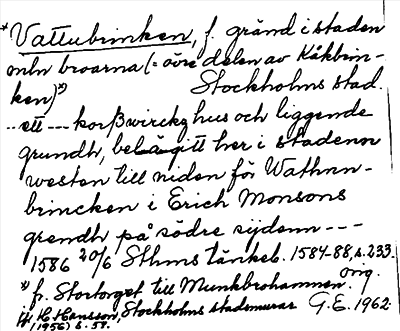 *Vattubrinken, f. gränd i staden
mln broarna (= övre delen av Kåkbrin-
ken)*)
Stockholms stad.
...ett --- korßwirckz hus och liggende
grundh, belägitt her i stadenn
westan till nidan för Wathnn-
brincken i Erich Monsons
grendh på södre sijdenn ---
1586 20/6 Sthms tänkeb. 1584-88, s. 233.
*) fr. Stortorget till Munkbrohamnen. orig.
H. Hansson, Stockholms stadsmurar G.E. 1962.
(1956) s. 58.